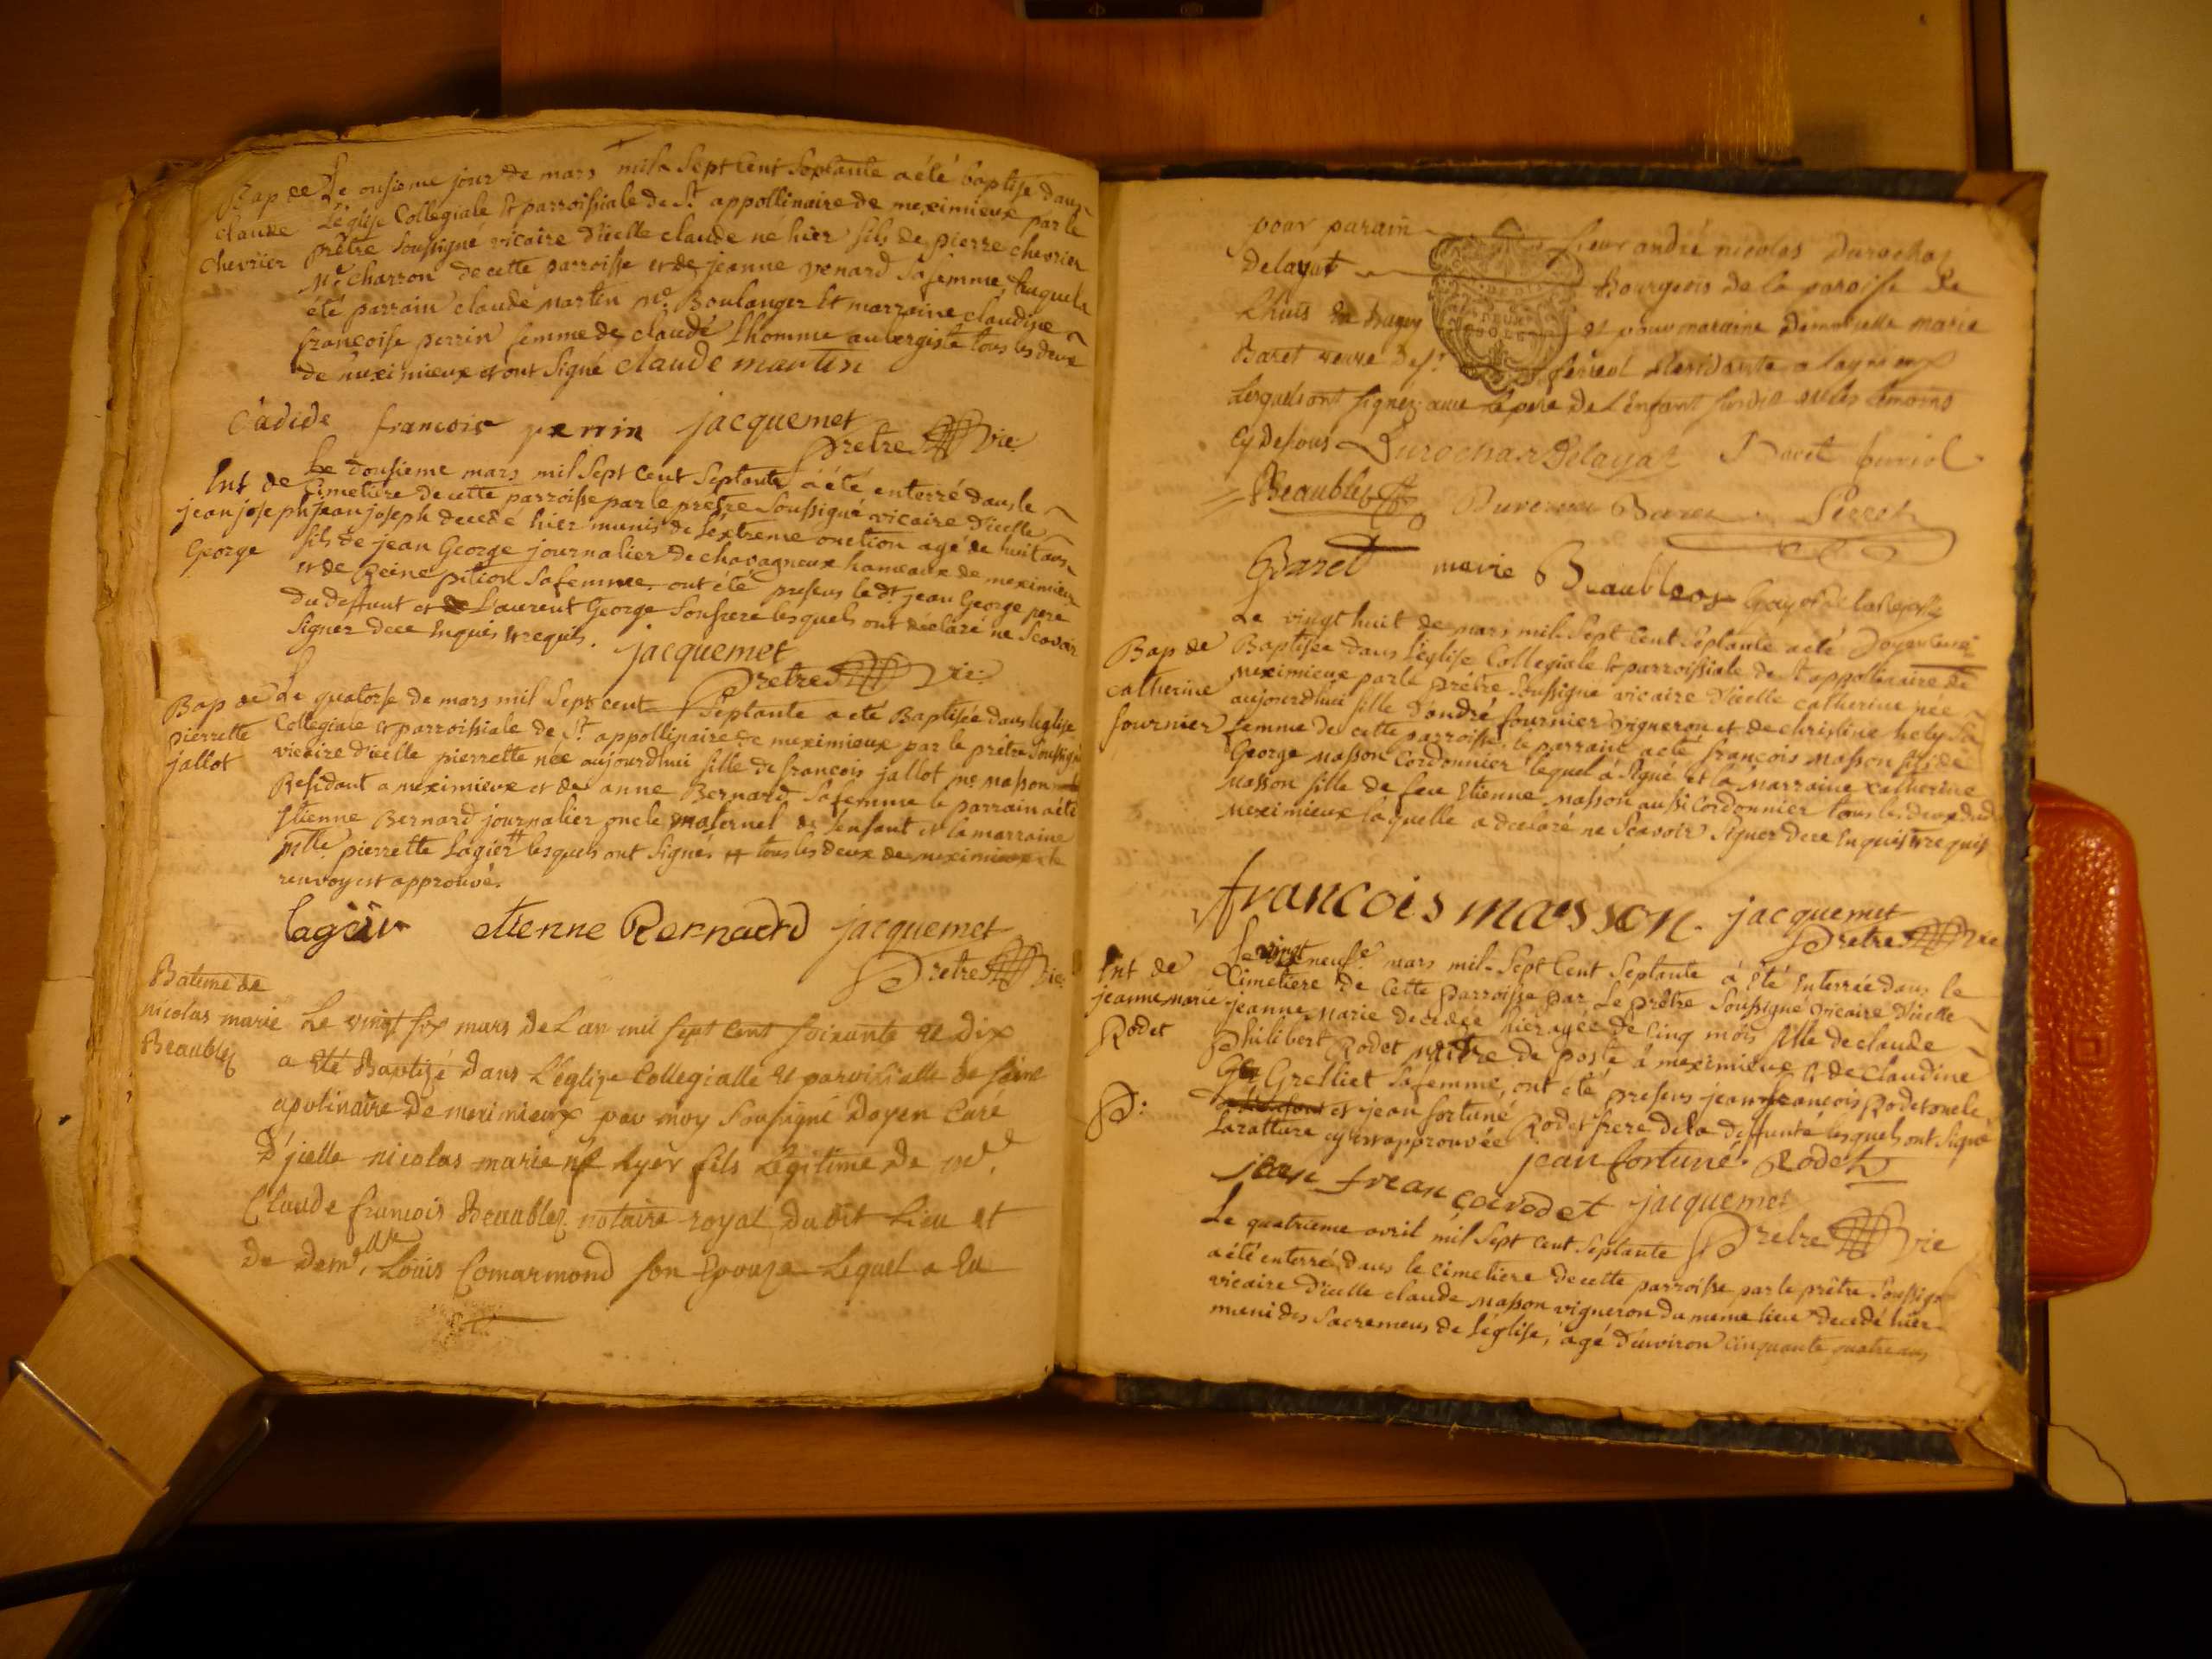 Bap de Le onsieme jour de mars mil Sept Cent Septante a été baptisé dans
claude L'église Collegiale et parroissiale de St appollinaire de meximieux par le
chevrier prêtre soussigné vicaire d'icelle claude né hier fils de pierre chevrier
Me. charron de cette parroisse et de jeanne venard sa femme, duquel a
été parrain claude martin Me. Boulanger et marraine claudine
francoise perrin femme de claude Lhomme aubergiste tous les deux
de meximieux et ont signé claude martin
francoise perrin jacquemet
prêtre vic:
Ent de Le dousieme mars mil Sept Cent Septante a été enterré dans le
Cimetiere de cette parroisse par le prêtre soussigné vicaire d'icelle
jean joseph jean joseph decedé hier munis de L'extreme onction agé de huit ans
George fils de jean George journalier de chavagneux hameaux de meximieux
et de Reine pition sa femme, ont été presens le dt jean George pere
du deffunt et Laurent George son frere lesquels ont déclaré ne scavoir
signer de ce Enquis et requis. jacquemet
prêtre vic:
Bap de Le quatorse de mars mil Sept cent Septante a été Baptisée dans l'eglise
pierrette Collegiale et parroissiale de St appollinaire de meximieux par le prêtre soussigné
jallot vicaire d'icelle pierrette née aujourdhui fille de francois jallot me. masson
Residant a meximieux et de anne Bernard sa femme le parrain a été
Etienne Bernard journalier oncle maternel de lenfant et la marraine
pierrette Lagier lesquels ont signés # tous les deux de meximieux le
renvoy est approuvé.
lagier etienne Bernard jacquemet
Prêtre vic:
Bateme de
nicolas marie Le vingt six mars de L'an mil sept cent soixante et dix
Beaublez a été Baptizé dans L'églize Collegialle et paroissialle de saint
apolinaire de meximieux par moy soussigné Doyen Curé
D'jcelle nicolas marie né hyer fils Légitime de
Claude francois Beaublez notaire royal dudit Lieu et
de demelle Louis Comarmond son Epouze Lequel a Eu
pour parain sieur andré nicolas
Delayat Bourgeois de la paroisse de
Lhuis et pour maraine demoiselle marie
Baret veuve de sr. feriol Residante a lagnieux
Lesquels ont signez avec le pere de L'enfant susdit et les temoins
cy dessous Delayat Baret
Beaublez Baret Perret
Baret marie Beaublez
Doyen Curé
Le vingt huit de mars mil Sept Cent Septante a été
Bap de Baptisée dans l'église Collegiale et parroissiale de St appollinaire de
catherine meximieux par le prêtre soussigné vicaire d'icelle catherine née
fournier aujourdhui fille d'andré fournier vigneron et de christine hely sa
femme de cette parroisse, le parrain a été francois masson fils de
George masson Cordonnier lequel a signé et la marraine catherine
masson fille de feu Etienne masson aussi Cordonnier tous les deux dud
meximieux laquelle a declaré ne scavoir signer de ce Enquis et requis
francois masson. jacquemet
Prêtre vic
Ent de Le vingt neufe mars mil Sept Cent Septante à été Enterrée dans le
jeanne marie Cimetiere de Cette parroisse par Le prêtre soussigné vicaire d'icelle
Rodet jeanne Marie decedée hier agée de Cinq mois fille de claude
philibert Rodet maître de poste a meximieux et de claudine
Grelliet sa femme, ont été presens jean francois Rodet oncle
et jean fortuné Rodet frere de la deffunte lesquels ont signé
La rature cy approuvée
jean fortuné Rodet
jean francois rodet jacquemet
Prêtre vic
Le quatrieme avril mil Sept Cent Septante
a été enterré dans le cimetiere de cette parroisse par le prêtre soussigné
vicaire d'icelle claude masson vigneron du meme lieu decedé hier
muni des Sacremens de L'église, agé d'environ cinquante quatre ans